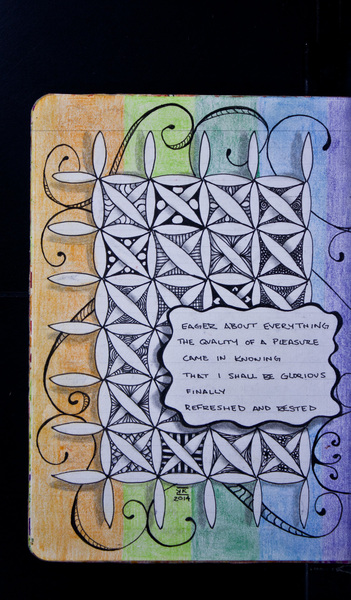 EAGER ABOUT EVERYTHING
THE QUALITY OF A PLEASURE
CAME IN KNOWING
THAT I SHALL BE GLORIOUS
FINALLY
REFRESHED AND RESTED
2014